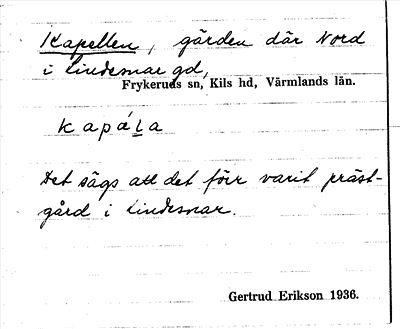 Kapellen, gården där Nord
i Lindesnar gd,
Frykeruds sn, Kils hd, Värmlands län.
kapála
Det sägs att det förr varit präst-
gård i Lindesnar.
Gertrud Erikson 1936.